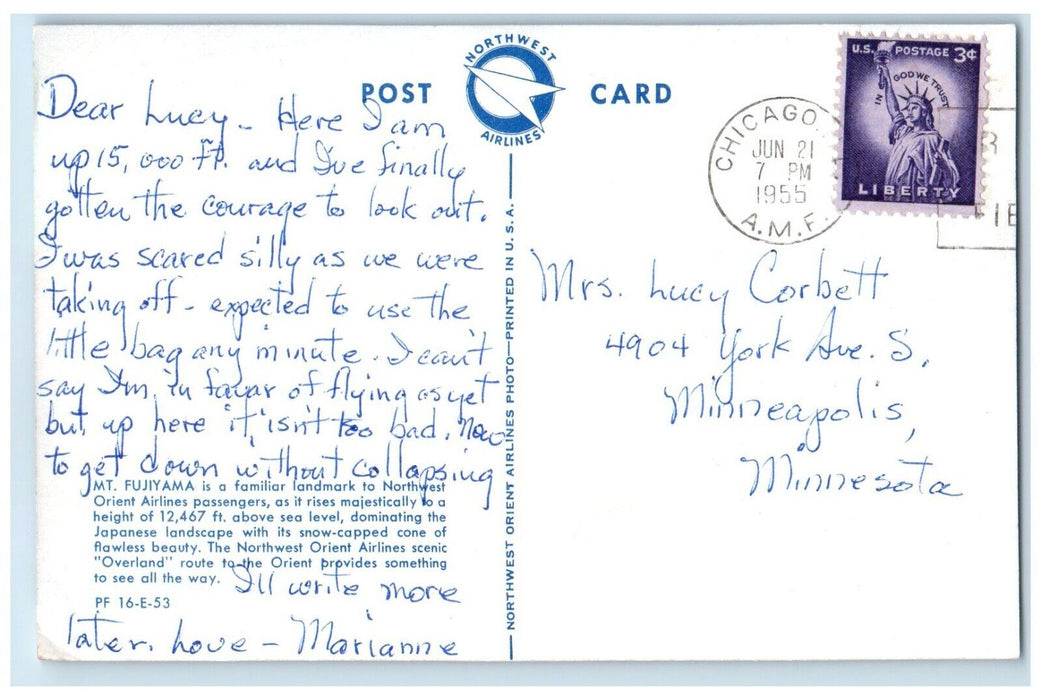 NORTHWEST
AIRLINES
POST CARD
Dear Lucy - Here I am
up 15,000 ft. and I've finally
gotten the courage to look out.
I was scared silly as we were
taking off - expected to use the
little bag any minute. I can't
say I'm in favor of flying as yet
but up here it isn't too bad. Now
to get down without collapsing
MT. FUJIYAMA is a familiar landmark to Northwest
Orient Airlines passengers, as it rises majestically to a
height of 12,467 ft. above sea level, dominating the
Japanese landscape with its snow-capped cone of
flawless beauty. The Northwest Orient Airlines scenic
"Overland" route to the Orient provides something
to see all the way.
I'll write more
PF 16-E-53
later. Love - Marianne
NORTHWEST ORIENT AIRLINES PHOTO—PRINTED IN U. S. A.
CHICAGO
JUN 21
7 PM
1955
A.M.F.
U.S. POSTAGE 3¢
IN GOD WE TRUST
LIBERTY
Mrs. Lucy Corbett
4904 York Ave. S.
Minneapolis,
Minnesota